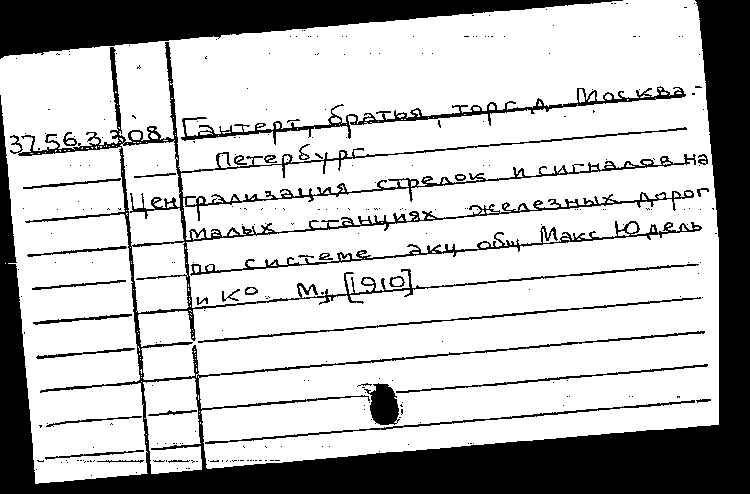 37.56.3.308. Гантерт, братья, торг. д. Москва-
Петербург.
Централизация стрелок и сигналов на
малых станциях железных дорог
по системе акц. общ. Макс Юдель
и К° М., [1910].